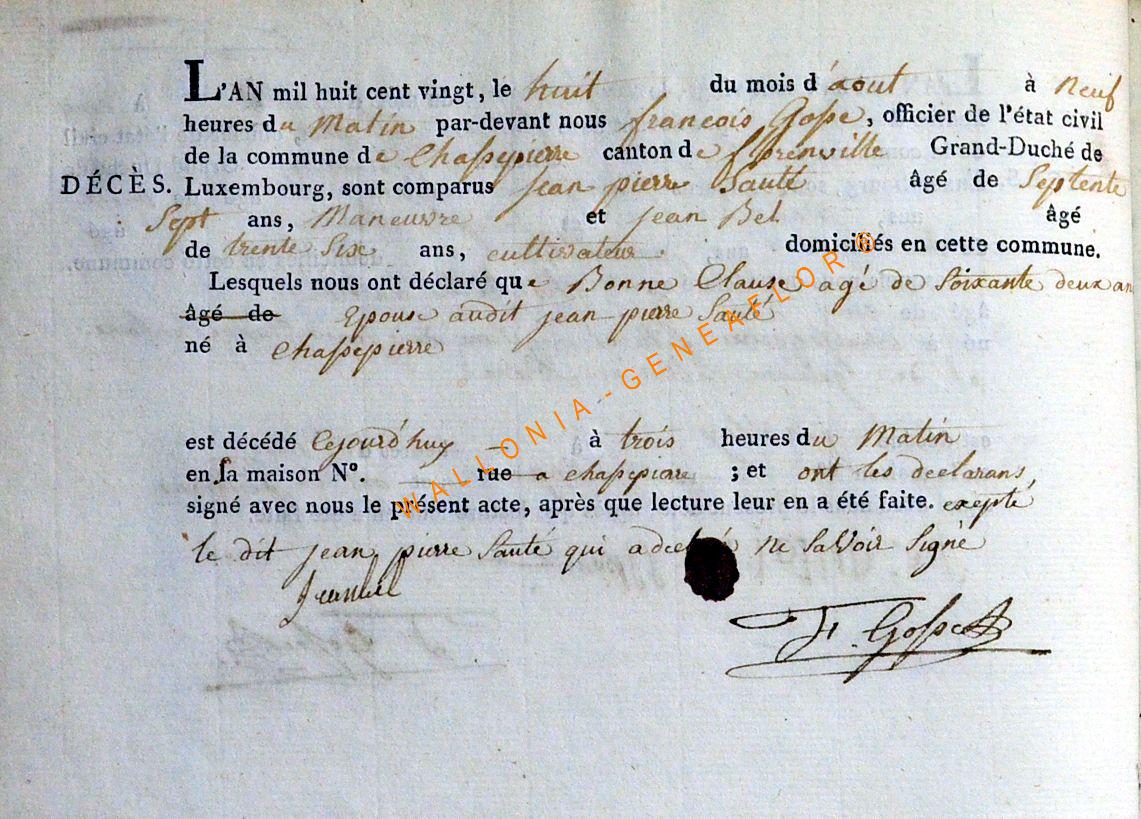 L'AN mil huit cent vingt, le huit du mois d'aout à neuf
heures du Matin par-devant nous francois Gosse, officier de l'état civil
de la commune de Chassepierre canton de florenville Grand-Duché de
DÉCÈS. Luxembourg, sont comparus jean pierre Sauté âgé de Septente
Sept ans, Maneuvre et jean Bel âgé
de trente Six ans, cultivateur domiciliés en cette commune.
Lesquels nous ont déclaré que Bonne Clause agé de Soixante deux an
âgé de Epouse audit jean pierre Sauté
né à Chassepierre
est décédé cejourd'huy à trois heures du Matin
en sa maison N°. rue a chassepiare ; et ont les declarans
signé avec nous le présent acte, après que lecture leur en a été faite. exepté
le dit jean pierre Sauté qui a ne savoir Signé
F. Gosse
WALLONIA - GENEAFLOR ©